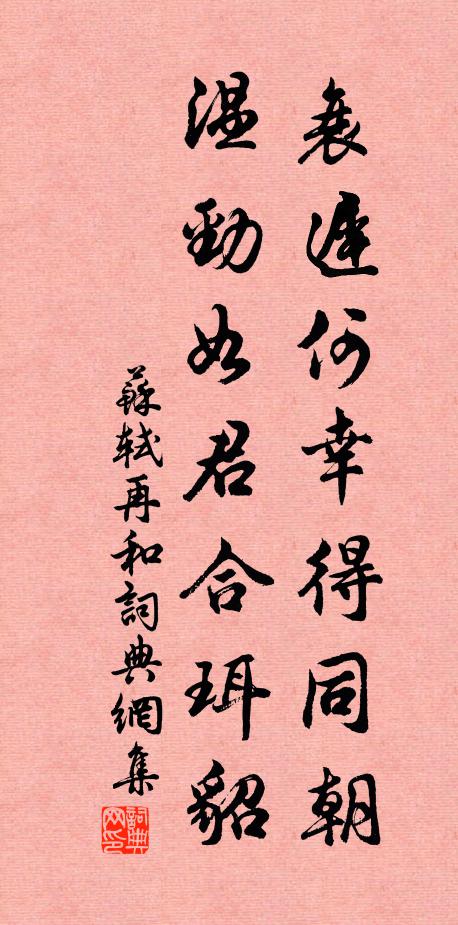 衰遲何幸得同朝
溫勁如君合珥貂
蘇軾再和詞典網集
詞典网印